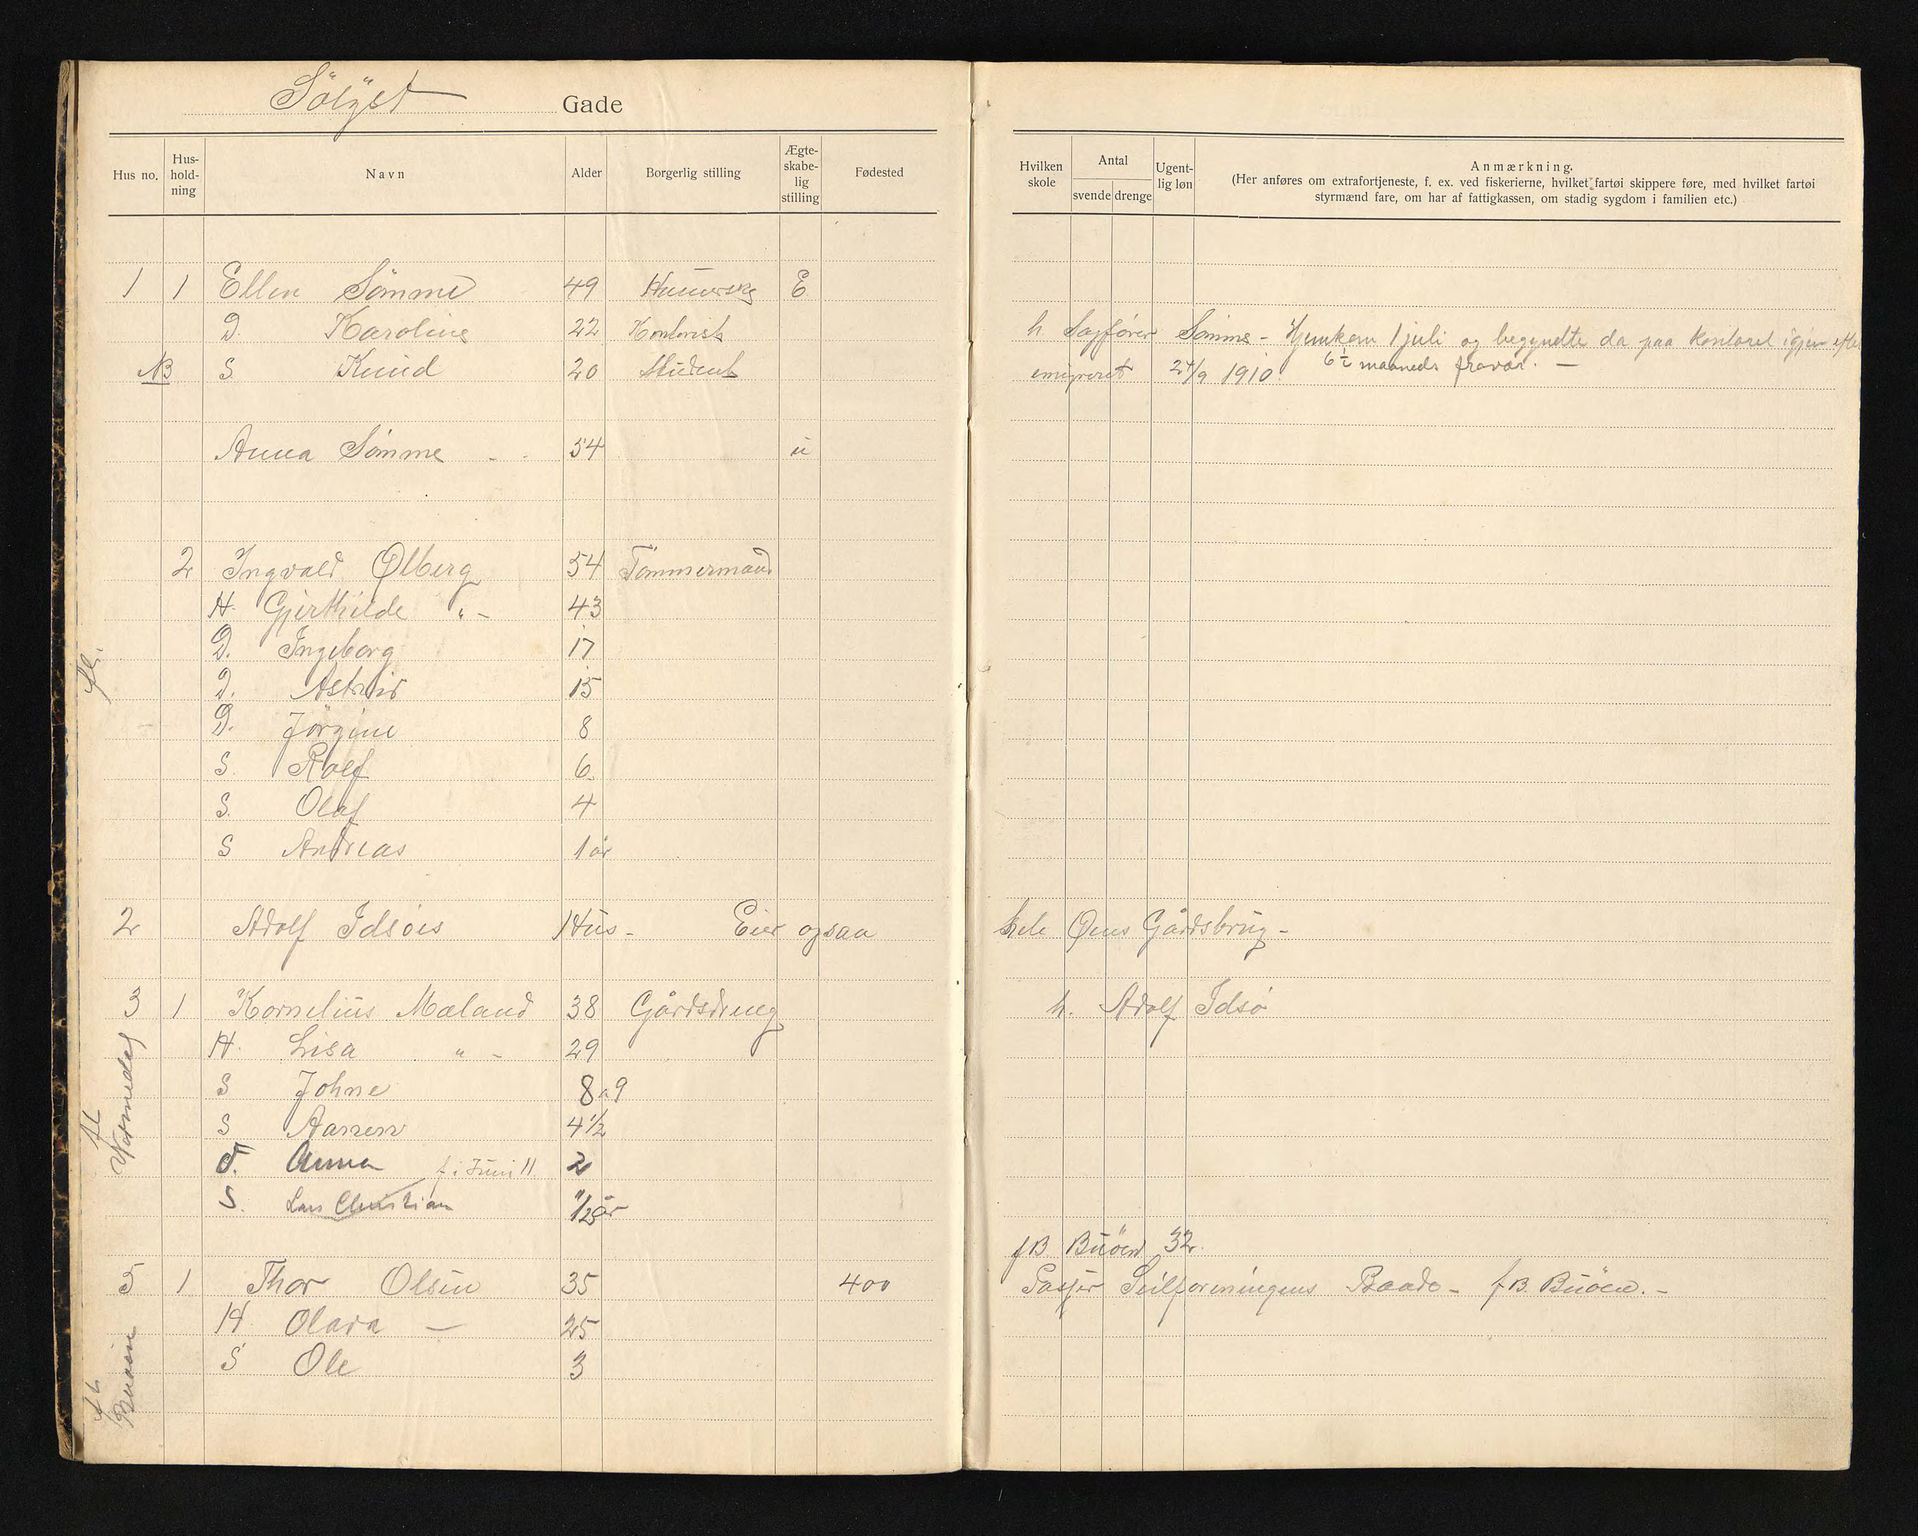 Sölyst Gade
Hus no. Hus-hold-ning Navn Alder Borgerlig stilling Ægte-skabe-lig stilling Fødested Hvilken skole Antal svende drenge Ugent-lig løn Anmærkning.
(Her anføres om extrafortjeneste, f. ex. ved fiskerierne, hvilket fartøi skippere føre, med hvilket fartøi
styrmænd fare, om har af fattigkassen, om stadig sygdom i familien etc.)
1 1 Ellen Sømme 49 E
D. Karoline 22 Kontorist h. Sagfører Sømme - Hjemkom 1 juli og begyndte da paa kontoret igjen efter
6½ maaneds fravær. —
NB S Knud 20 Student emigreret 24/9 1910.
Anna Sømme - - 54 u
2 Ingvald Ølberg 54 Tømmermand
H. Gjerthilde " - 43
D. Ingeborg 17
D. Astrid 15
D. Jørgine 8
S. Rolf 6
S. Olaf 4
S Andreas 1 år
fl.
2 Adolf Idsøes Hus - Eier ogsaa hele Øens Gårdsbrug -
3 1 Kornelius Mæland 38 Gårdsdreng h. Adolf Idsø
H. Lisa " - 29
S Johne 8 a 9
S Aanen 4½
d. Anna f. i Juni 11 2
S. Lars Christian 1/2 år
fl
f B. Buöen 32.
5 1 Thor Olsen 35 400 Passer Seilforeningens Baade - f B. Buöen. -
H Olava — 25
S Ole 3
fl
Buöen